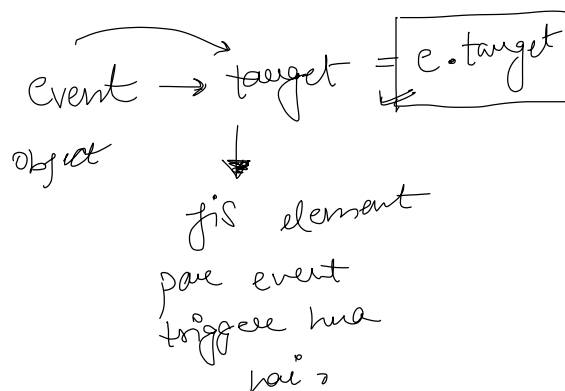 event → target = e.target
object
jis element
pare event
trigger hua
hai